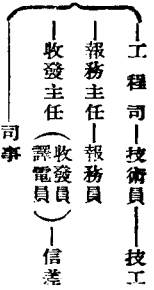 工程司—技術員—技工
報務主任—報務員
收發主任(收發員 譯電員)—信差
司事